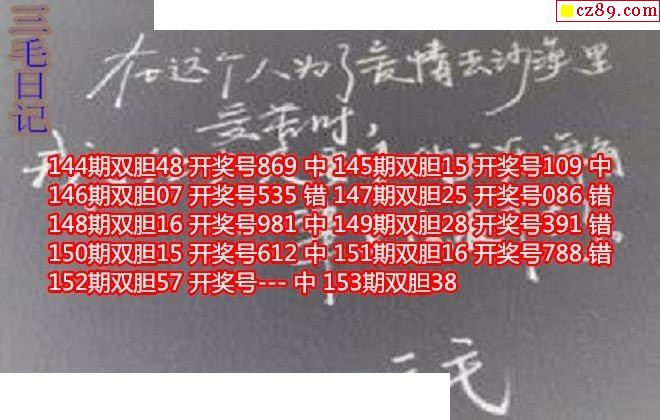 三毛日记
cz89.com
在这个人为了爱情去沙漠里
受苦时，
144期双胆48 开奖号869 中 145期双胆15 开奖号109 中
146期双胆07 开奖号535 错 147期双胆25 开奖号086 错
148期双胆16 开奖号981 中 149期双胆28 开奖号391 错
150期双胆15 开奖号612 中 151期双胆16 开奖号788 错
152期双胆57 开奖号--- 中 153期双胆38
三毛